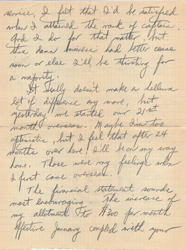 service, I felt that I'd be satisfied
when I attained the rank of captain.
And I do for that matter, but
the damn had better cease
soon or else I'll be thirsting for
a majority.
It really doesn't make a
lot of difference any more, but
yesterday we started our 21st
month overseas. Maybe I'm too
optimistic, but I feel that after 24
months over here, I'll be on my way
home. Those were my feelings when
I first came overseas.
The financial statement sounds
most encouraging. The increase of
my allotment to $200 per month
effective January coupled with your